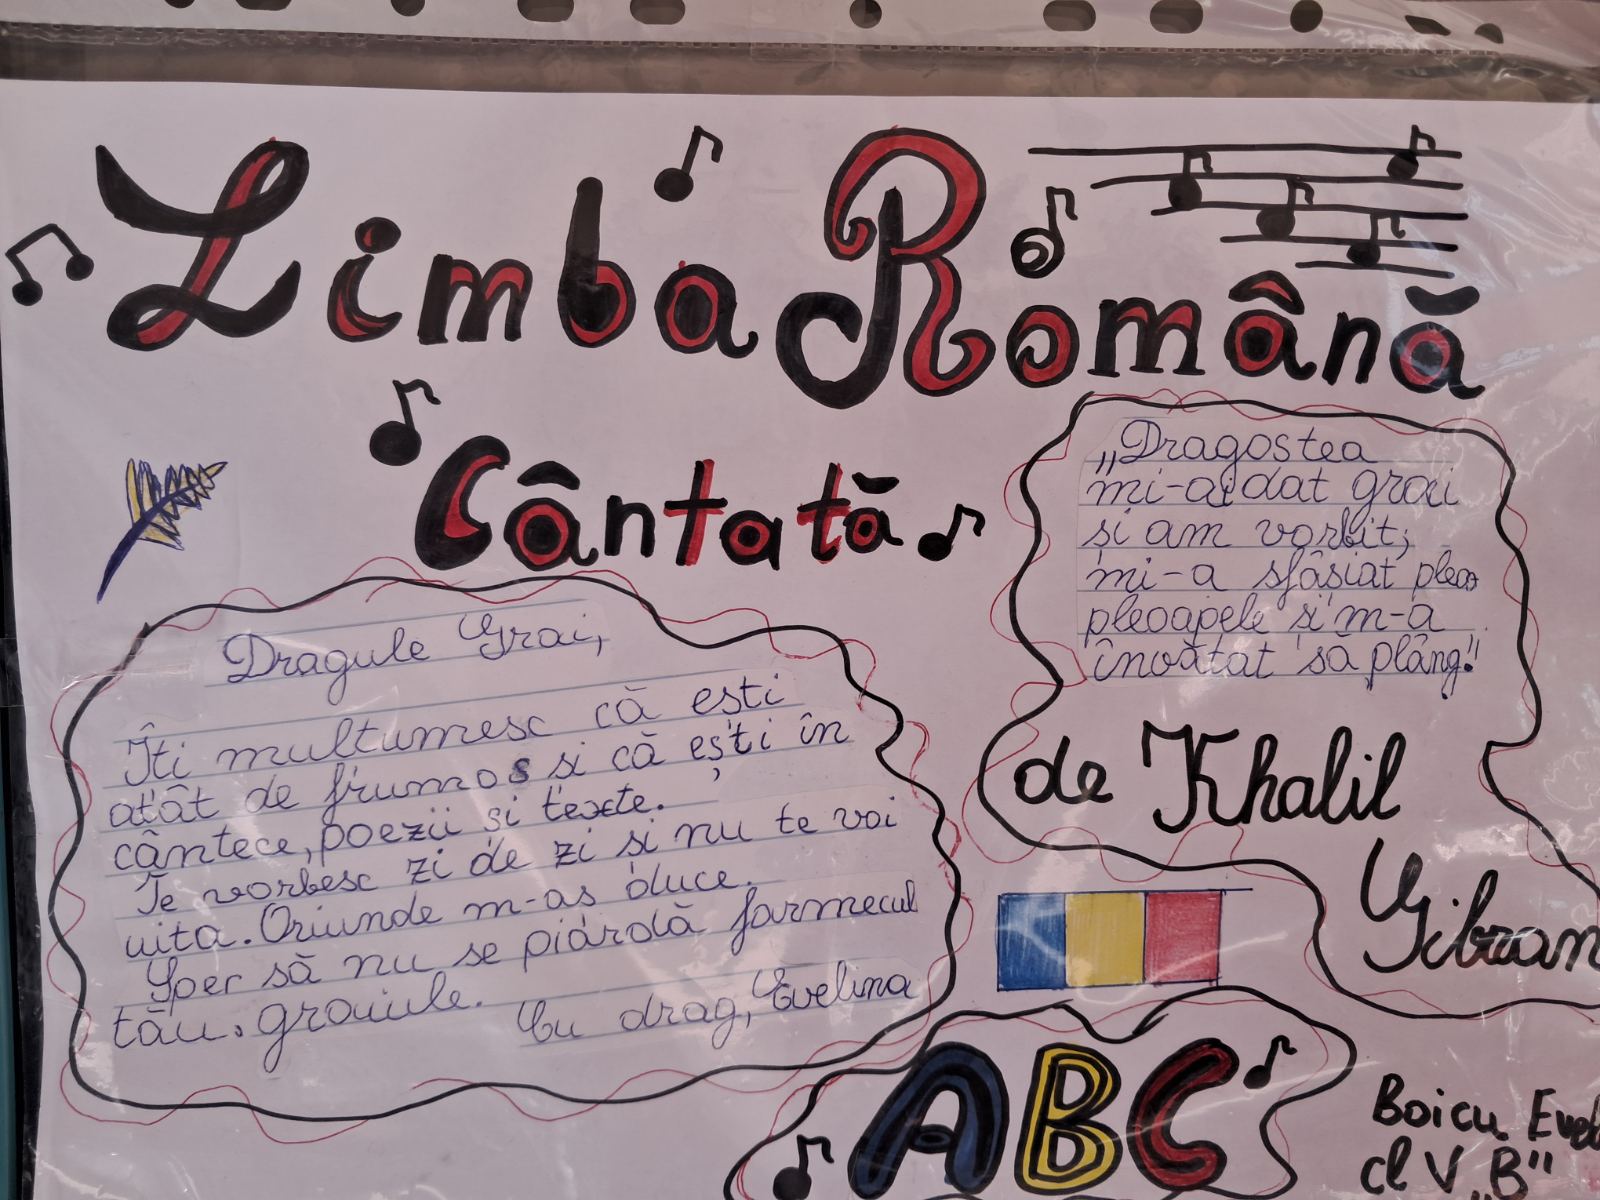 Limba Română
Cântată
„Dragostea
mi-a dat grai
și am vorbit;
mi-a sfâșiat pleoa
pleoapele și m-a
învățat să plâng!"
de Khalil
Gibran
Dragule Grai,
Îți mulțumesc că ești
atât de frumos și că ești în
cântece, poezii și texte.
Te vorbesc zi de zi și nu te voi
uita. Oriunde m-aș duce.
Sper să nu se piardă farmecul
tău. graiule.
Cu drag, Evelina
ABC
Boicu Evel
cl V „B"